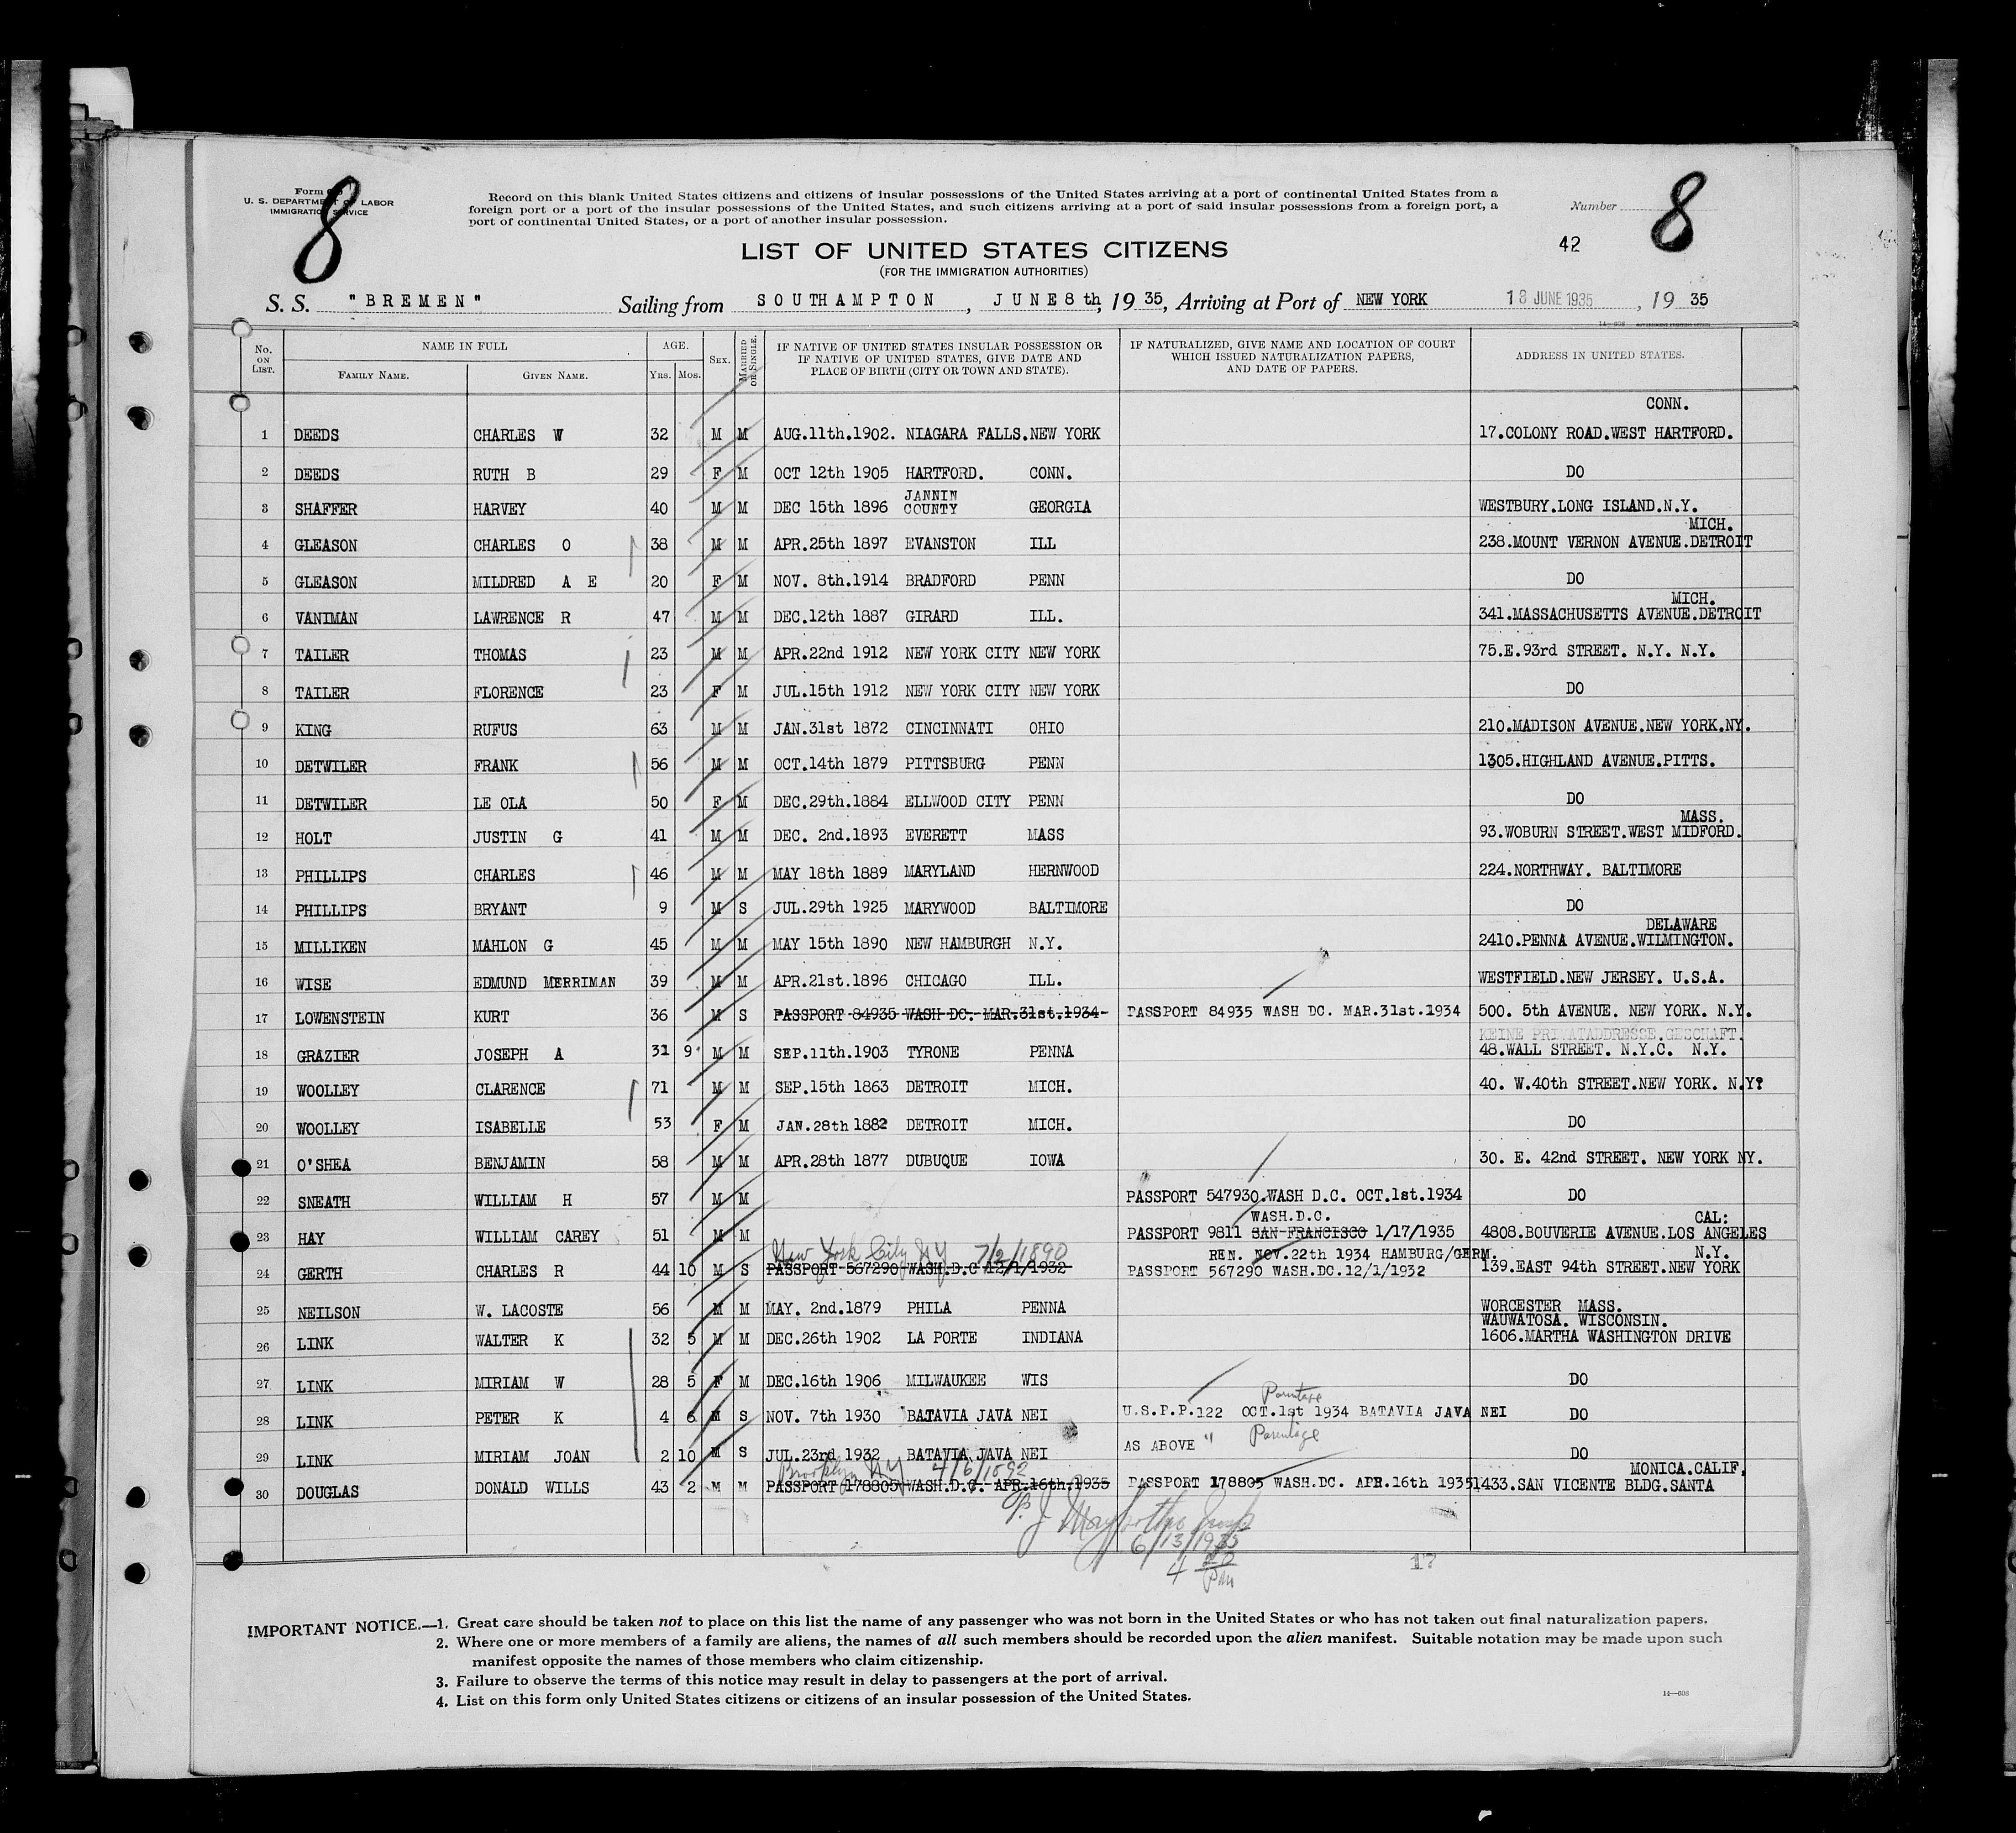 8
8
Form
U. S. DEPARTMENT OF LABOR
IMMIGRATION SERVICE
Record on this blank United States citizens and citizens of insular possessions of the United States arriving at a port of continental United States from a
foreign port or a port of the insular possessions of the United States, and such citizens arriving at a port of said insular possessions from a foreign port, a
port of continental United States, or a port of another insular possession.
Number
42
LIST OF UNITED STATES CITIZENS
(FOR THE IMMIGRATION AUTHORITIES)
S. S. "BREMEN" Sailing from SOUTHAMPTON, JUNE 8 th, 19 35, Arriving at Port of NEW YORK 13 JUNE 1935, 19 35
No. ON LIST. NAME IN FULL AGE. SEX. MARRIED OR SINGLE. IF NATIVE OF UNITED STATES INSULAR POSSESSION OR IF NATIVE OF UNITED STATES, GIVE DATE AND PLACE OF BIRTH (CITY OR TOWN AND STATE). IF NATURALIZED, GIVE NAME AND LOCATION OF COURT WHICH ISSUED NATURALIZATION PAPERS, AND DATE OF PAPERS. ADDRESS IN UNITED STATES.
FAMILY NAME. GIVEN NAME. YRS. MOS.
CONN.
1 DEEDS CHARLES W 32 M M AUG.11th.1902. NIAGARA FALLS.NEW YORK 17.COLONY ROAD.WEST HARTFORD.
2 DEEDS RUTH B 29 F M OCT 12th 1905 HARTFORD. CONN. DO
JANNIN
3 SHAFFER HARVEY 40 M M DEC 15th 1896 COUNTY GEORGIA WESTBURY.LONG ISLAND.N.Y.
MICH.
4 GLEASON CHARLES O 38 M M APR.25th 1897 EVANSTON ILL 238.MOUNT VERNON AVENUE.DETROIT
5 GLEASON MILDRED A E 20 F M NOV. 8th.1914 BRADFORD PENN DO
MICH.
6 VANIMAN LAWRENCE R 47 M M DEC.12th 1887 GIRARD ILL. 341.MASSACHUSETTS AVENUE.DETROIT
7 TAILER THOMAS 23 M M APR.22nd 1912 NEW YORK CITY NEW YORK 75.E.93rd STREET. N.Y. N.Y.
8 TAILER FLORENCE 23 F M JUL.15th 1912 NEW YORK CITY NEW YORK DO
9 KING RUFUS 63 M M JAN.31st 1872 CINCINNATI OHIO 210.MADISON AVENUE.NEW YORK.NY.
10 DETWILER FRANK 56 M M OCT.14th 1879 PITTSBURG PENN 1305.HIGHLAND AVENUE.PITTS.
11 DETWILER LE OLA 50 F M DEC.29th.1884 ELLWOOD CITY PENN DO
MASS.
12 HOLT JUSTIN G 41 M M DEC. 2nd.1893 EVERETT MASS 93.WOBURN STREET.WEST MIDFORD.
13 PHILLIPS CHARLES 46 M M MAY 18th 1889 MARYLAND HERNWOOD 224.NORTHWAY. BALTIMORE
14 PHILLIPS BRYANT 9 M S JUL.29th 1925 MARYWOOD BALTIMORE DO
DELAWARE
15 MILLIKEN MAHLON G 45 M M MAY 15th 1890 NEW HAMBURGH N.Y. 2410.PENNA AVENUE.WILMINGTON.
16 WISE EDMUND MERRIMAN 39 M M APR.21st.1896 CHICAGO ILL. WESTFIELD.NEW JERSEY. U.S.A.
17 LOWENSTEIN KURT 36 M S PASSPORT 84935 WASH DC. MAR.31st.1934 PASSPORT 84935 WASH DC. MAR.31st.1934 500. 5th AVENUE. NEW YORK. N.Y.
KEINE PRIVATADDRESSE.GESCHAFT.
18 GRAZIER JOSEPH A 31 9 M M SEP.11th.1903 TYRONE PENNA 48.WALL STREET. N.Y.C. N.Y.
19 WOOLLEY CLARENCE 71 M M SEP.15th 1863 DETROIT MICH. 40. W.40th STREET.NEW YORK. N.Y?
20 WOOLLEY ISABELLE 53 F M JAN.28th 1882 DETROIT MICH. DO
21 O'SHEA BENJAMIN 58 M M APR.28th 1877 DUBUQUE IOWA 30. E. 42nd STREET. NEW YORK NY.
22 SNEATH WILLIAM H 57 M M PASSPORT 547930.WASH D.C. OCT.1st.1934 DO
WASH.D.C. CAL:
23 HAY WILLIAM CAREY 51 M M PASSPORT 9811 SAN FRANCISCO 1/17/1935 4808.BOUVERIE AVENUE.LOS ANGELES
New York City NY 7/2/1890 REN. NOV.22th 1934 HAMBURG/GERM. N.Y.
24 GERTH CHARLES R 44 10 M S PASSPORT 567290 WASH.D.C 12/1/1932 PASSPORT 567290 WASH.DC.12/1/1932 139.EAST 94th STREET.NEW YORK
25 NEILSON W. LACOSTE 56 M M MAY. 2nd.1879 PHILA PENNA WORCESTER MASS.
WAUWATOSA. WISCONSIN.
26 LINK WALTER K 32 5 M M DEC.26th 1902 LA PORTE INDIANA 1606.MARTHA WASHINGTON DRIVE
27 LINK MIRIAM W 28 5 F M DEC.16th 1906 MILWAUKEE WIS DO
Parentage
28 LINK PETER K 4 6 M S NOV. 7th 1930 BATAVIA JAVA NEI U.S.P.P.122 OCT.1st 1934 BATAVIA JAVA NEI DO
29 LINK MIRIAM JOAN 2 10 M S JUL.23rd 1932 BATAVIA JAVA NEI AS ABOVE " Parentage DO
Brooklyn NY 4/6/1892 MONICA.CALIF.
30 DOUGLAS DONALD WILLS 43 2 M M PASSPORT 178805 WASH.D.C. APR.16th.1935 PASSPORT 178805 WASH.DC. APR.16th 1935 1433.SAN VICENTE BLDG.SANTA
6/13/1935
17
IMPORTANT NOTICE.—1. Great care should be taken not to place on this list the name of any passenger who was not born in the United States or who has not taken out final naturalization papers.
2. Where one or more members of a family are aliens, the names of all such members should be recorded upon the alien manifest. Suitable notation may be made upon such
manifest opposite the names of those members who claim citizenship.
3. Failure to observe the terms of this notice may result in delay to passengers at the port of arrival.
4. List on this form only United States citizens or citizens of an insular possession of the United States.
14—608